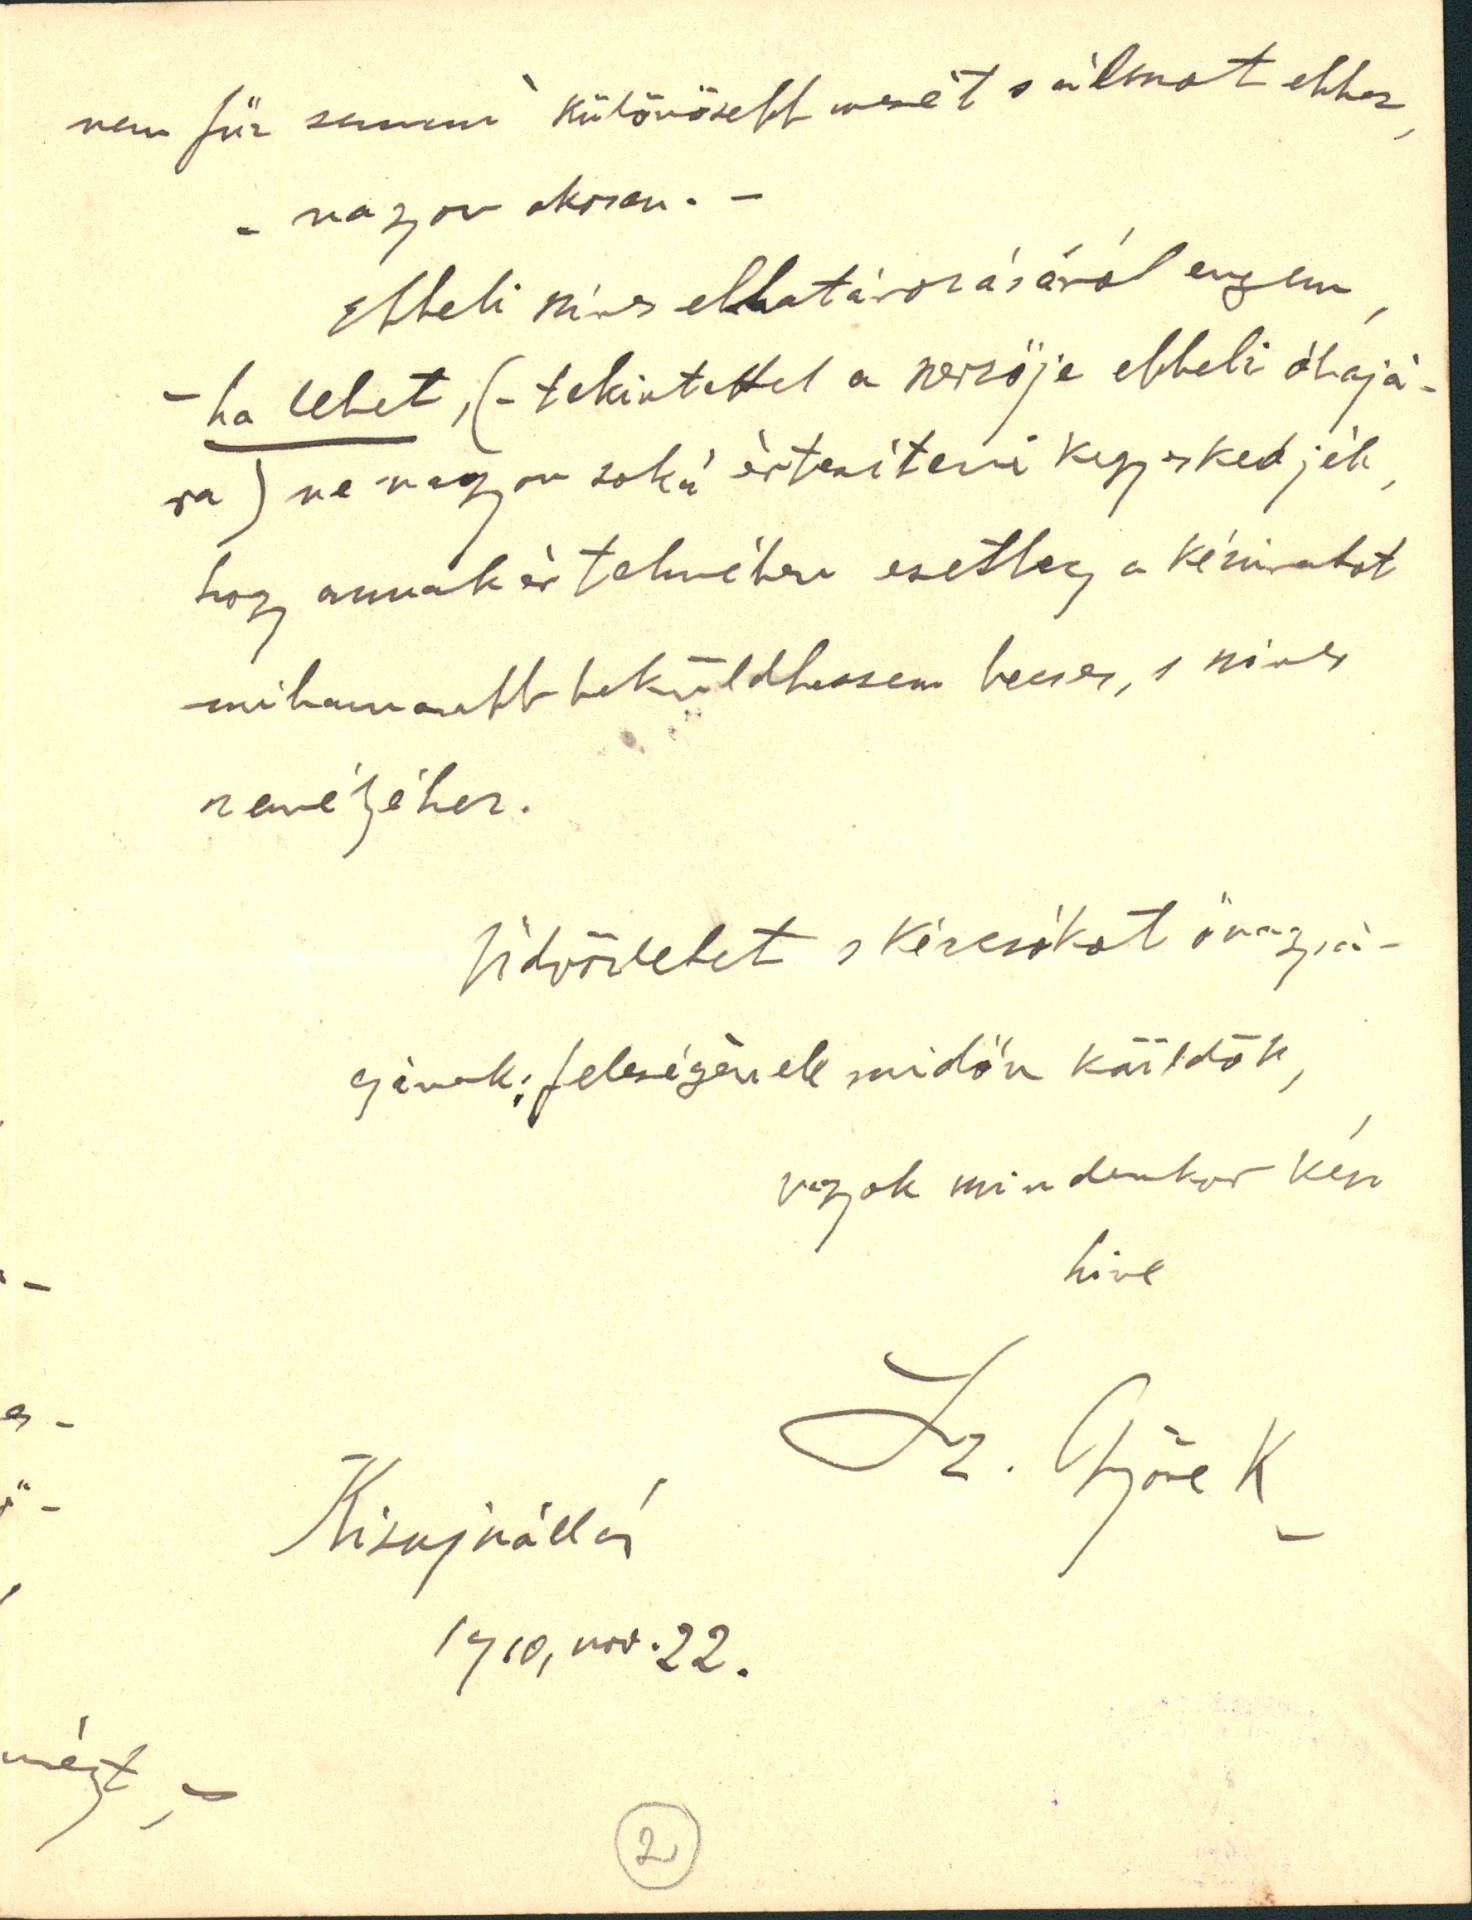 nem fűz semmi különösebb mesét s álmot ehhez,
- nagyon okosan. -
Ebbeli szives elhatározásáról engem,
- ha lehet, (- tekintettel a szerzője ebbeli óhajá-
ra) ne nagyon soká értesíteni kegyeskedjék,
hogy annak értelmében esetleg a kéziratot
mihamarabb beküldhessem becses, s szives
személyéhez.
Üdvözletet s kézcsókot őnagysá-
gának: feleségének midőn küldök,
vagyok mindenkor kész
hive
Sz. Győre K
Kisujszállás
1910, nov. 22.
2